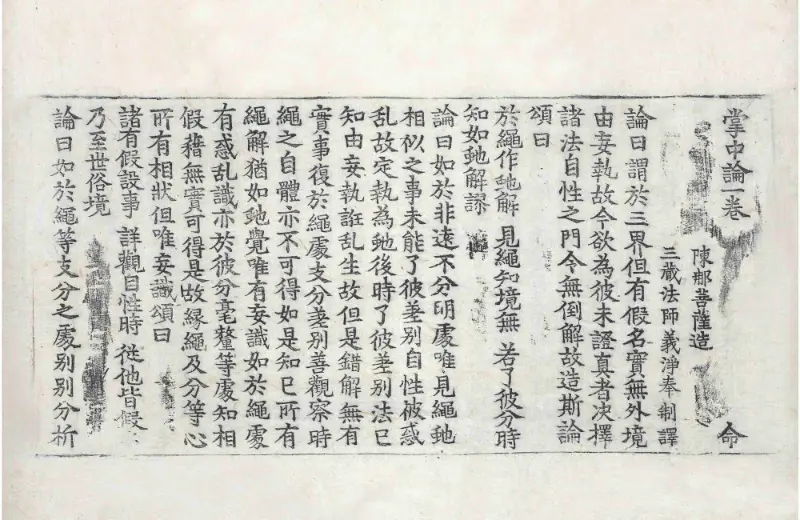 掌中論一卷 命
陳那菩薩造
三蔵法師義淨奉 制譯
論曰謂於三界但有假名實無外境
由妄執故今欲為彼未證真者决擇
諸法自性之門令無倒解故造斯論
頌曰
於繩作虵解 見繩知境無 若了彼分時
知如虵解謬
論曰如於非遠不分明處唯見繩虵
相似之事未能了彼差別自性被惑
乱故定執為虵後時了彼差別法已
知由妄執誑乱生故但是錯解無有
實事復於繩處支分差別善觀察時
繩之自體亦不可得如是知已所有
繩解猶如虵覺唯有妄識如於繩處
有惑乱識亦於彼分毫氂等處知相
假藉無實可得是故緣繩及分等心
所有相狀但唯妄識頌曰
諸有假設事 詳觀自性時 從他皆假
乃至世俗境
論曰如於繩等支分之處別別分析